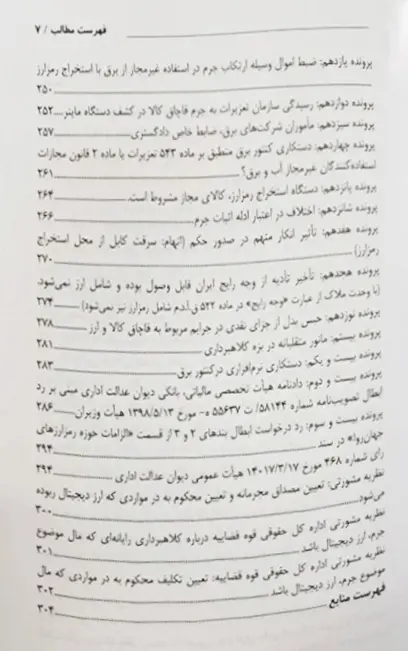 فهرست مطالب / ۷
پرونده یازدهم: ضبط اموال وسیله ارتکاب جرم در استفاده غیرمجاز از برق با استخراج رمزارز
۲۵۰
پرونده دوازدهم: رسیدگی سازمان تعزیرات به جرم قاچاق کالا در کشف دستگاه ماینر.....۲۵۲
پرونده سیزدهم: مأموران شرکت‌های برق، ضابط خاص دادگستری.....۲۵۷
پرونده چهاردهم: دستکاری کنتور برق منطبق بر ماده ۵۴۳ تعزیرات یا ماده ۲ قانون مجازات
استفاده‌کنندگان غیرمجاز آب و برق؟.....۲۶۱
پرونده پانزدهم: دستگاه استخراج رمزارز، کالای مجاز مشروط است.....۲۶۴
پرونده شانزدهم: اختلاف در اعتبار ادله اثبات جرم.....۲۶۶
پرونده هفدهم: تأثیر انکار متهم در صدور حکم (اتهام: سرقت کابل از محل استخراج
رمزارز).....۲۷۰
پرونده هجدهم: تأخیر تأدیه از وجه رایج ایران قابل وصول بوده و شامل ارز نمی‌شود.
(با وحدت ملاک از عبارت «وجه رایج» در ماده ۵۲۲ ق.آ.د.م شامل رمزارز نیز نمی‌شود).....۲۷۴
پرونده نوزدهم: حبس بدل از جزای نقدی در جرایم مربوط به قاچاق کالا و ارز.....۲۷۸
پرونده بیستم: مانور متقلبانه در بزه کلاهبرداری.....۲۸۱
پرونده بیست و یکم: دستکاری نرم‌افزاری در کنتور برق.....۲۸۳
پرونده بیست و دوم: دادنامه هیأت تخصصی مالیاتی، بانکی دیوان عدالت اداری مبنی بر رد
ابطال تصویب‌نامه شماره ۵۸۱۴۴/ ت ۵۵۶۳۷ ه‍- مورخ ۱۳۹۸/۵/۱۳ هیأت وزیران.....۲۸۶
پرونده بیست و سوم: رد درخواست ابطال بندهای ۲ و ۳ از قسمت «الزامات حوزه رمزارزهای
جهان‌روا» در سند.....۲۹۴
رأی شماره ۴۶۸ مورخ ۱۴۰۱۷/۳/۱۷ هیأت عمومی دیوان عدالت اداری.....۲۹۴
نظریه مشورتی: تعیین مصداق مجرمانه و تعیین محکوم به در مواردی که ارز دیجیتال ربوده
می‌شود.....۳۰۰
نظریه مشورتی اداره کل حقوقی قوه قضاییه درباره کلاهبرداری رایانه‌ای که مال موضوع
جرم، ارز دیجیتال باشد.....۳۰۱
نظریه مشورتی اداره کل حقوقی قوه قضاییه: تعیین تکلیف محکوم به در مواردی که مال
موضوع جرم، ارز دیجیتال باشد.....۳۰۲
فهرست منابع.....۳۰۴